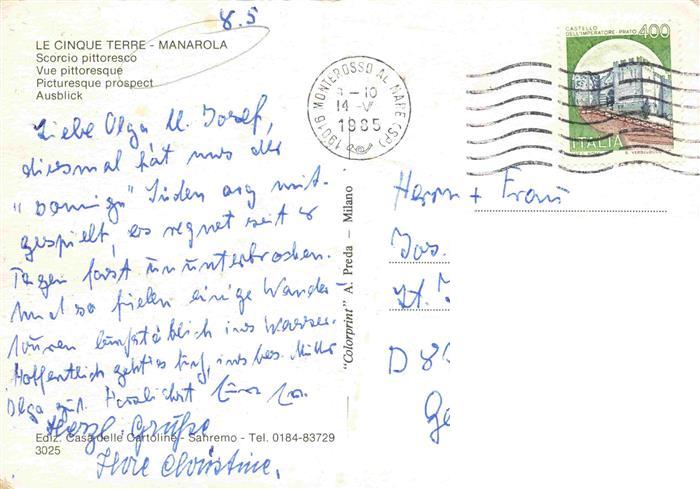 8.5
LE CINQUE TERRE - MANAROLA
Scorcio pittoresco
Vue pittoresque
Picturesque prospect
Ausblick
Liebe Olga u. Josef,
diesmal hat uns der
"sonnige" Süden arg mit-
gespielt, es regnet seit 8
Tagen fast ununterbrochen.
Und so fielen einige Wander-
touren buchstäblich ins Wasser.
Hoffentlich geht es Euch, insbes. Mutter
Olga gut. Herzlichst
Herzl. Grüße
Ihre Christine.
Ediz. Casa delle Cartoline - Sanremo - Tel. 0184-83729
3025
"Colorprint" A. Preda - Milano
19016 MONTEROSSO AL MARE (SP)
-10
14-V
1985
CASTELLO
DELL'IMPERATORE-PRATO
400
ITALIA
Herrn + Frau
Jos.
St.
D 8
Ge